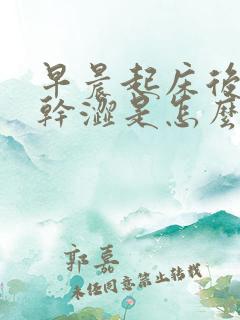 早晨起床後
幹澀是怎麼
郭嘉
未经同意禁止转载